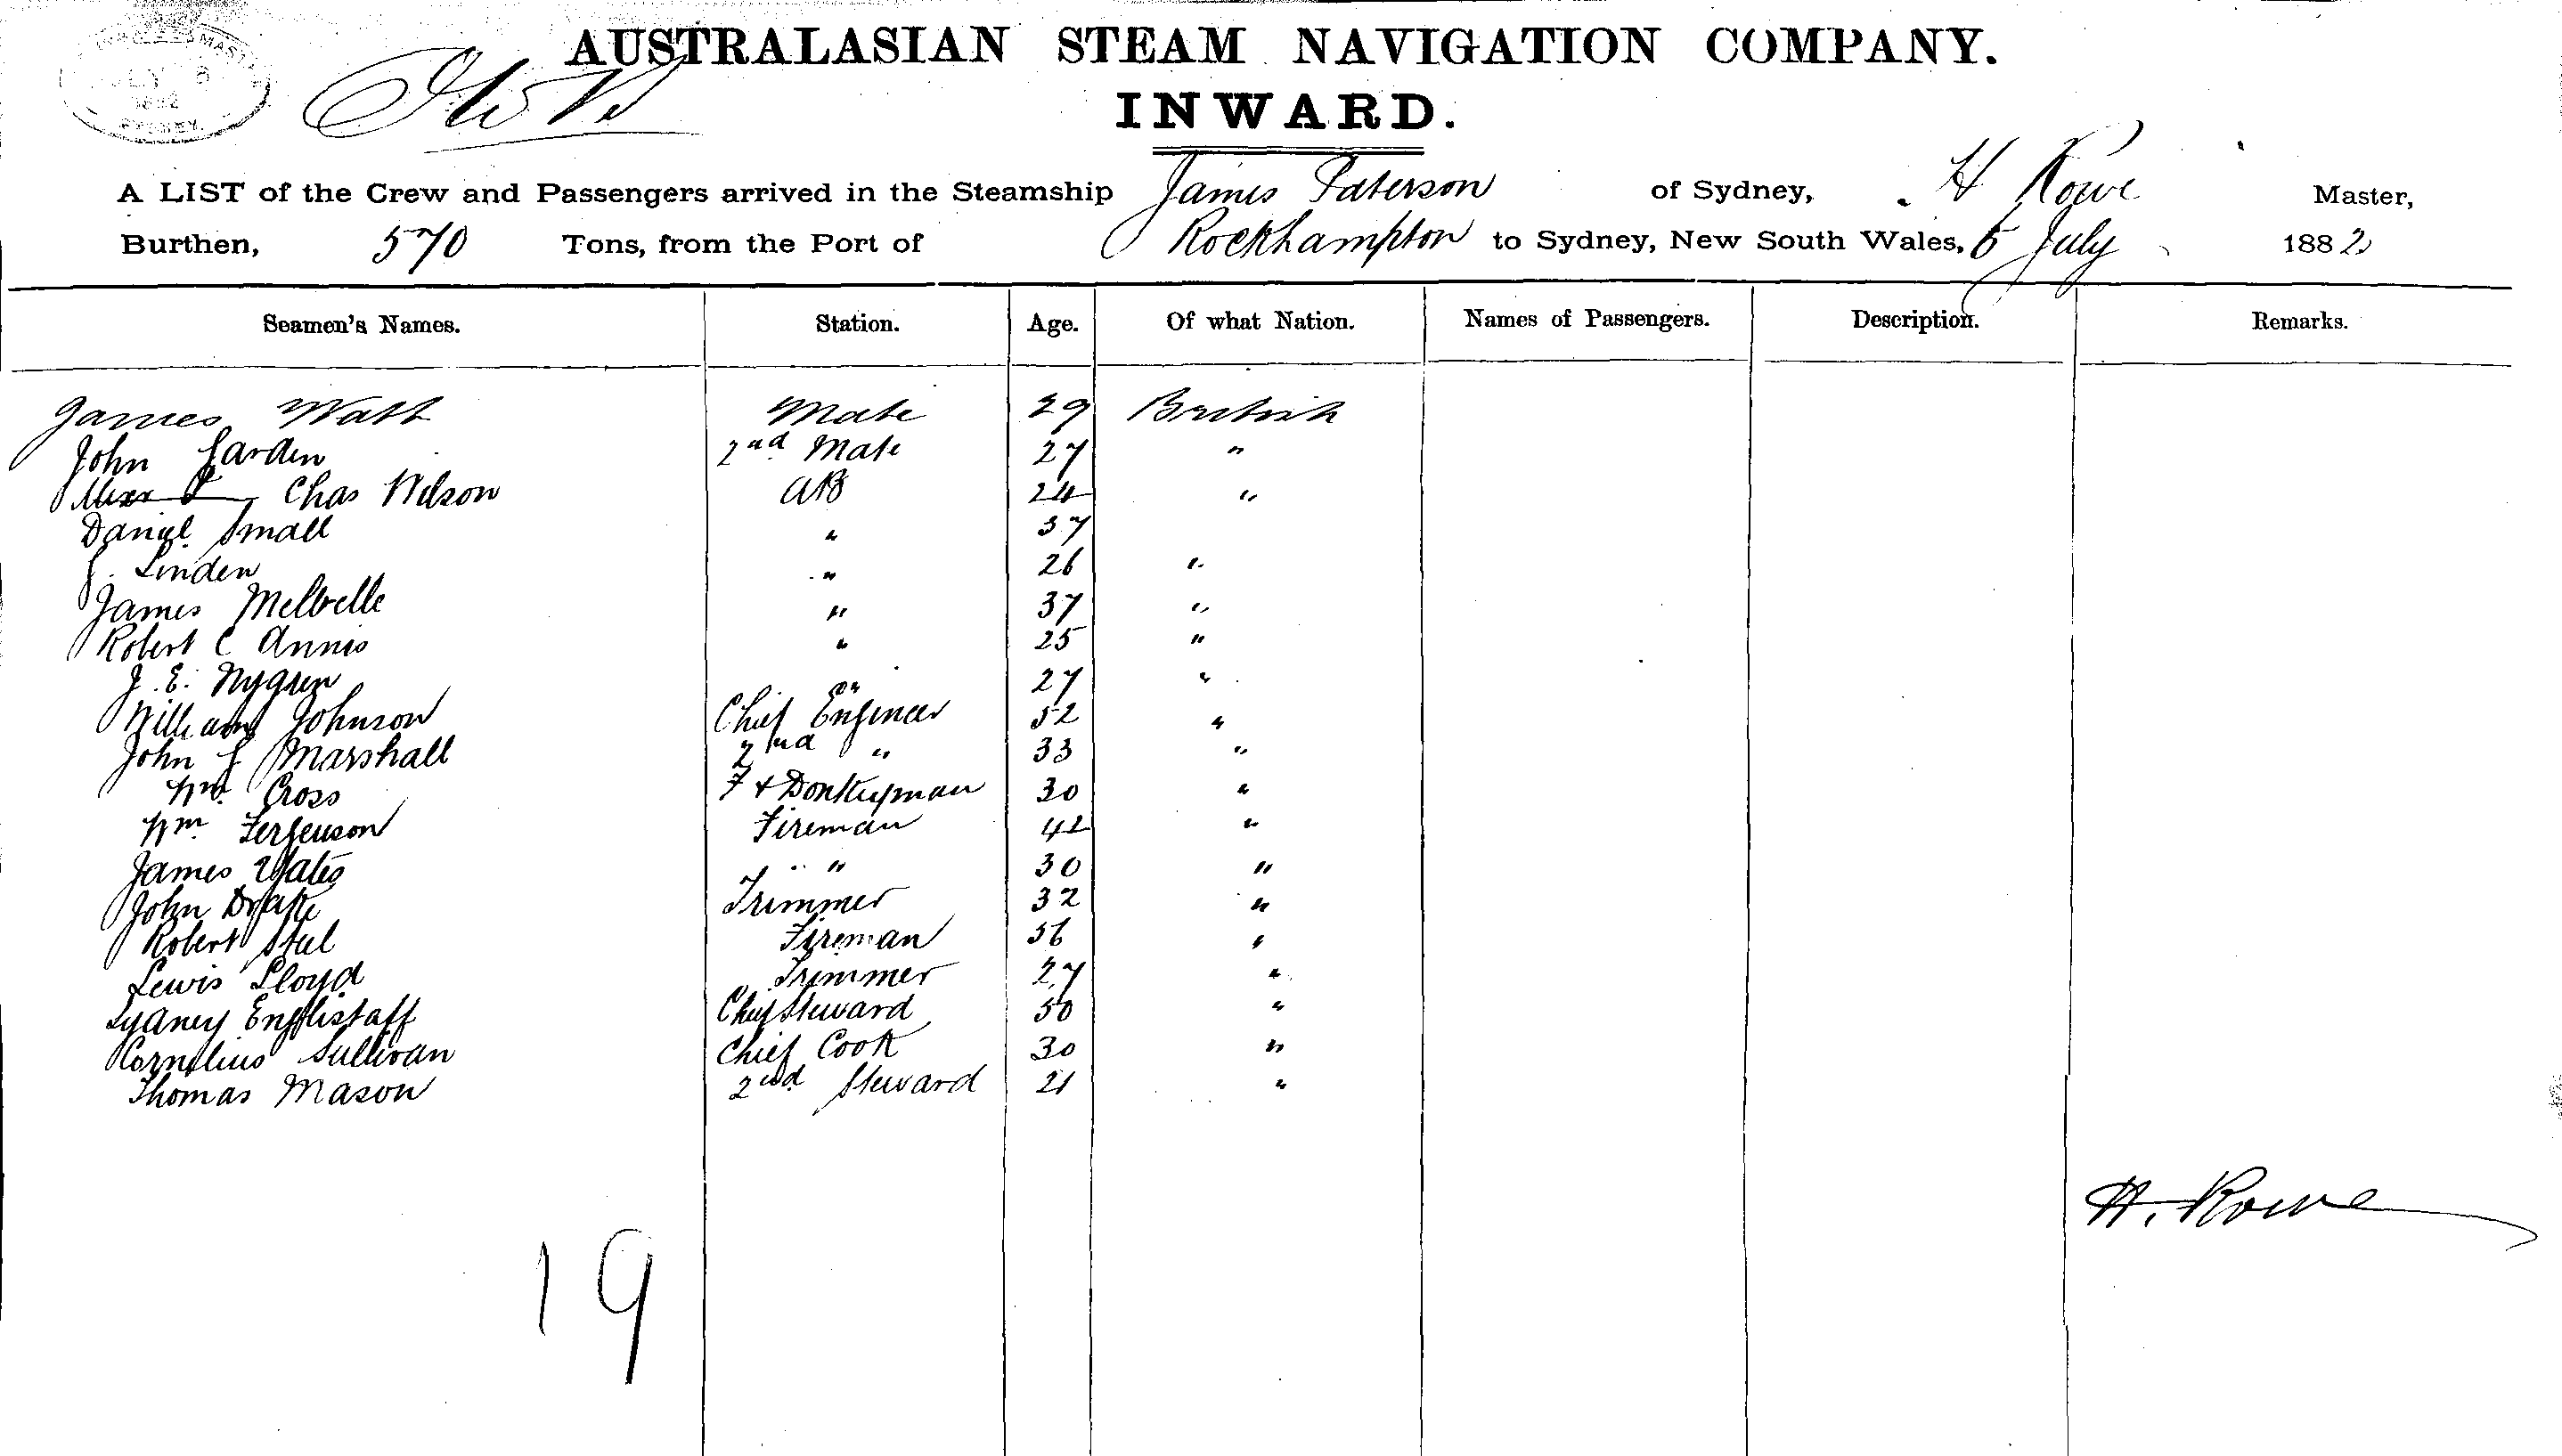 AUSTRALASIAN STEAM NAVIGATION COMPANY.
INWARD.
A LIST of the Crew and Passengers arrived in the Steamship James Paterson of Sydney, H Rowe Master,
Burthen, 570 Tons, from the Port of Rockhampton to Sydney, New South Wales, 5 July 1882
Seamen's Names. Station. Age. Of what Nation. Names of Passengers. Description. Remarks.
James Watt Mate 29 British
John Jarden 2nd Mate 27 "
Chas Wilson AB 24 "
Daniel Small " 37
J. Linden " 26 "
James Melville " 37 "
Robert C Annis " 25 "
J. E. Nygren " 27 "
William Johnson Chief Engineer 52 "
John J Marshall 2nd " 33 "
Wm Cross F & Donkeyman 30 "
Wm Ferguson Fireman 42 "
James Yates " 30 "
John Drake Trimmer 32 "
Robert Steel Fireman 56 "
Lewis Lloyd Trimmer 27 "
Sydney Englistaff Chief Steward 50 "
Cornelius Sullivan Chief Cook 30 "
Thomas Mason 2nd Steward 21 "
H. Rowe
19